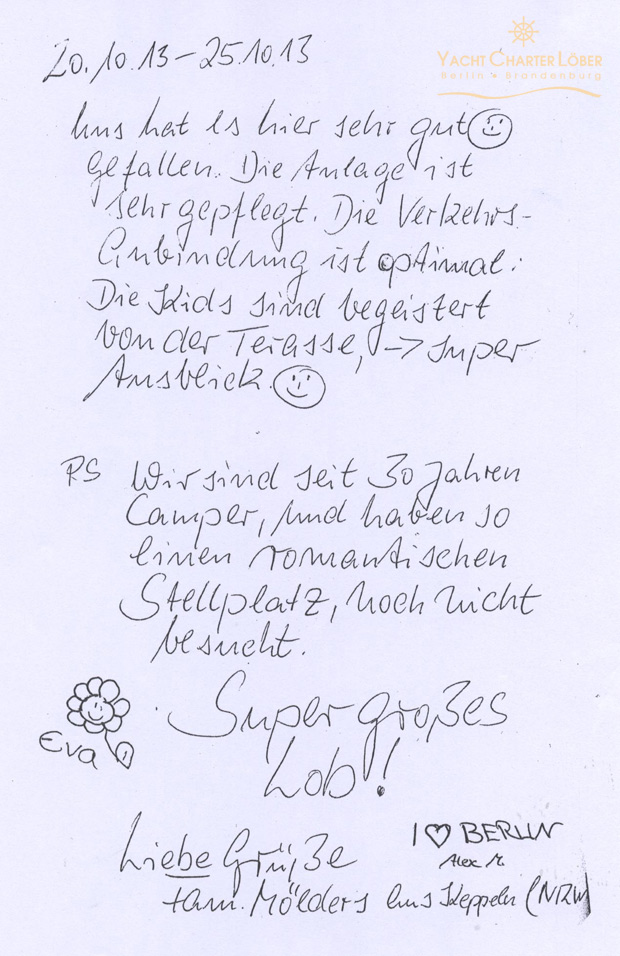 YACHT CHARTER LÖBER
Berlin Brandenburg
20.10.13 – 25.10.13
Uns hat es hier sehr gut
gefallen. Die Anlage ist
sehr gepflegt. Die Verkehrs-
Anbindung ist optimal.
Die Kids sind begeistert
von der Terasse, -> super
Ausblick.
PS Wir sind seit 30 Jahren
Camper, und haben so
einen romantischen
Stellplatz, noch nicht
besucht.
Super großes
Lob!
Eva
I ♡ BERLIN
Alex M.
Liebe Grüße
Fam. Mölders aus Keppeln (NRW)